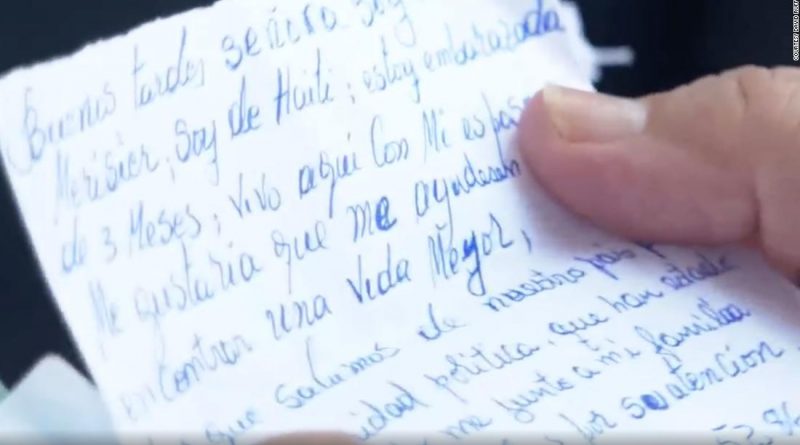 Buenas tardes señora soy
Merisier, soy de Haiti; estoy embarazada
de 3 Meses; vivo aquí Con Mi esposo
Me gustaria que me ayudasen
encontrar una vida Mejor,
que salimos de nuestro país
política, que han estado
me junto a mi familia
por su atención,
COURTESY DAVID RUFF